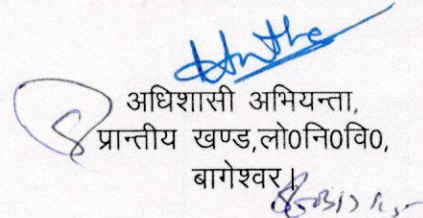 अधिशासी अभियन्ता,
प्रान्तीय खण्ड,लो0नि0वि0,
बागेश्वर।